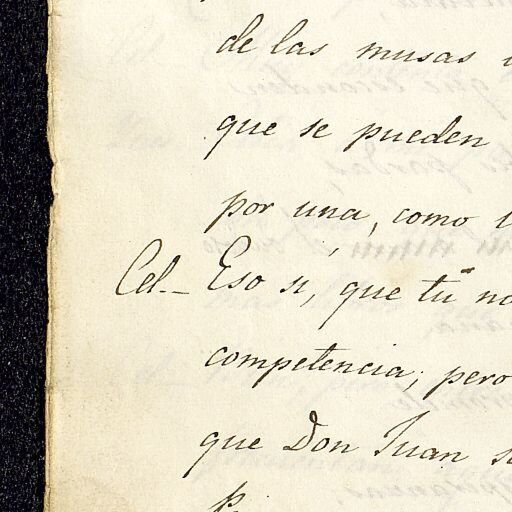 de las musas
que se pueden
por una, como
Cel.- Eso sí, que tú no
competencia; pero
que Don Juan